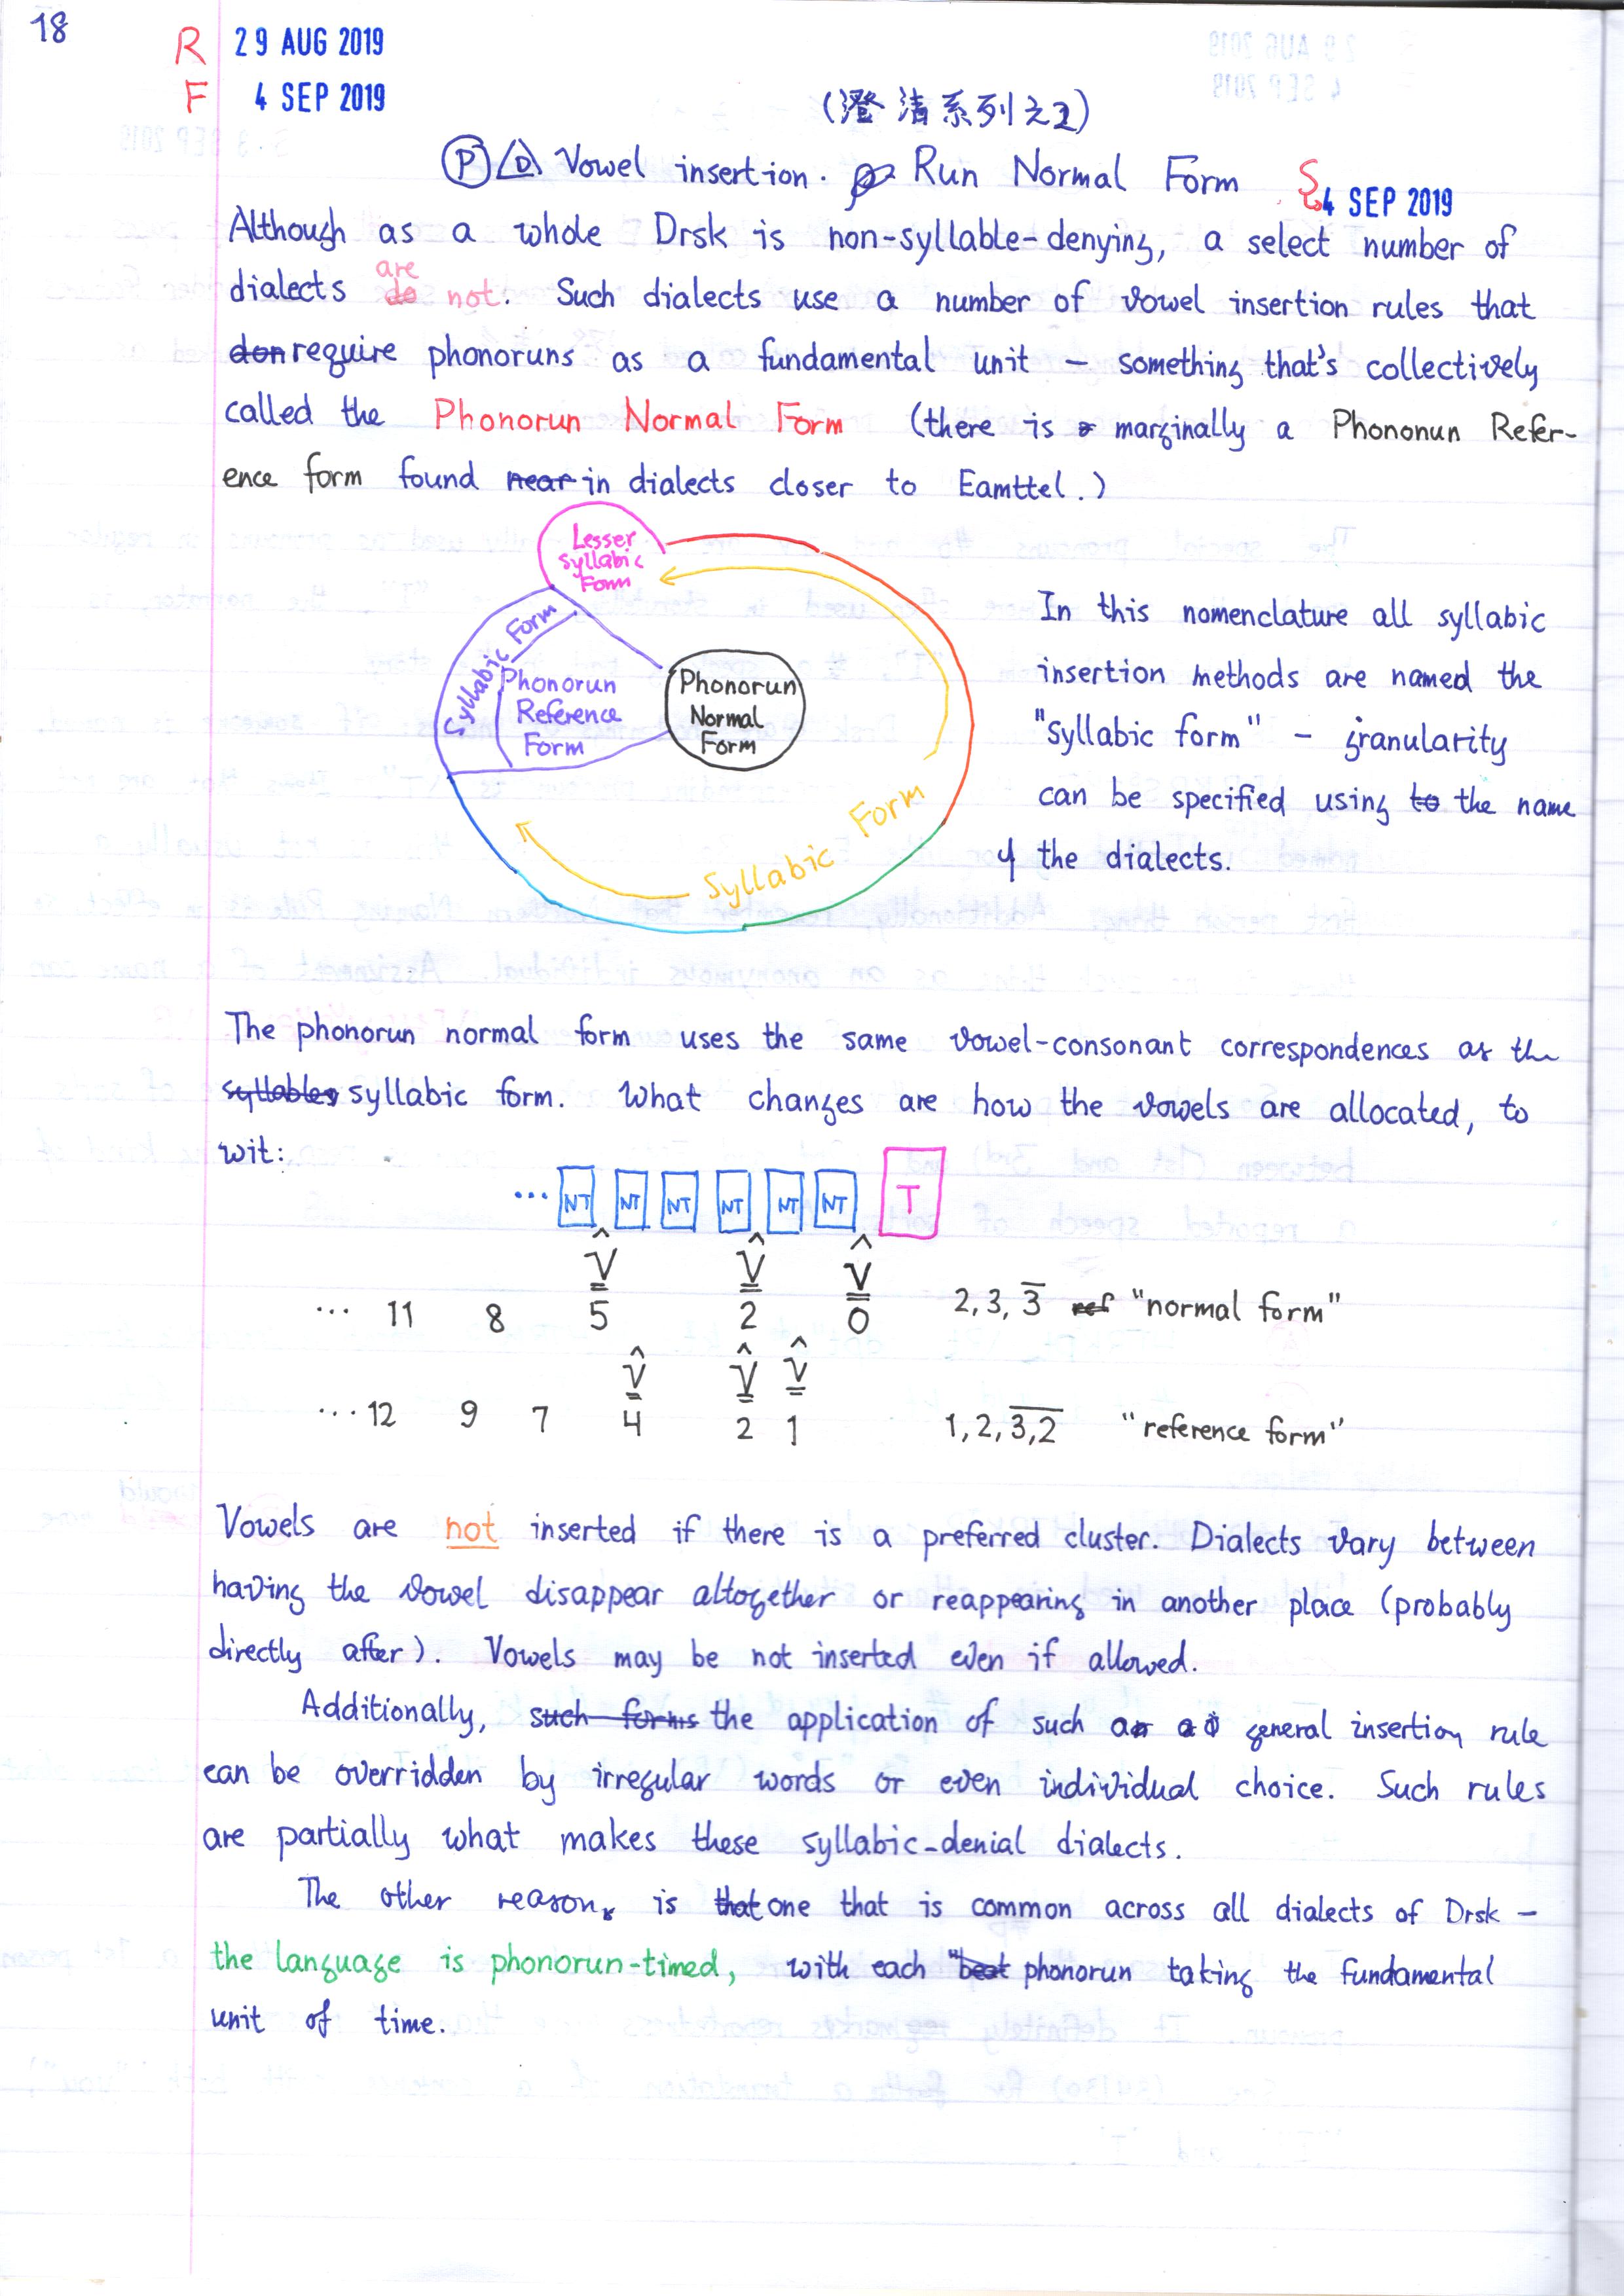 18
R 29 AUG 2019
F 4 SEP 2019
(澄清系列之2)
P/D Vowel insertion. Run Normal Form S 4 SEP 2019
Although as a whole Drsk is non-syllable-denying, a select number of
dialects do are not. Such dialects use a number of vowel insertion rules that
don require phonoruns as a fundamental unit – something that's collectively
called the Phonorun Normal Form (there is a marginally a Phononun Refer-
ence form found near in dialects closer to Eamttel.)
Lesser
Syllabic
Form
Syllabic Form
Phonorun
Reference
Form
Phonorun
Normal
Form
Syllabic Form
In this nomenclature all syllabic
insertion methods are named the
"syllabic form" – granularity
can be specified using to the name
of the dialects.
The phonorun normal form uses the same vowel-consonant correspondences as the
syllables syllabic form. What changes are how the vowels are allocated, to
wit:
... NT NT NT NT NT NT T
V̂ V̂ V̂
... 11 8 5 2 0 2, 3, 3̅ ref "normal form"
V̂ V̂ V̂
... 12 9 7 4 2 1 1, 2, 3̅,̅2̅ "reference form"
Vowels are not inserted if there is a preferred cluster. Dialects vary between
having the vowel disappear altogether or reappearing in another place (probably
directly after). Vowels may be not inserted even if allowed.
Additionally, such forms the application of such an a general insertion rule
can be overridden by irregular words or even individual choice. Such rules
are partially what makes these syllabic-denial dialects.
The other reason, is that one that is common across all dialects of Drsk –
the language is phonorun-timed, with each "beat phonorun taking the fundamental
unit of time.